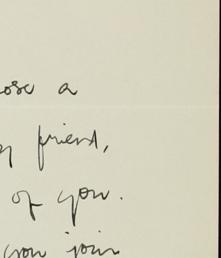 a
friend,
of you.
you join